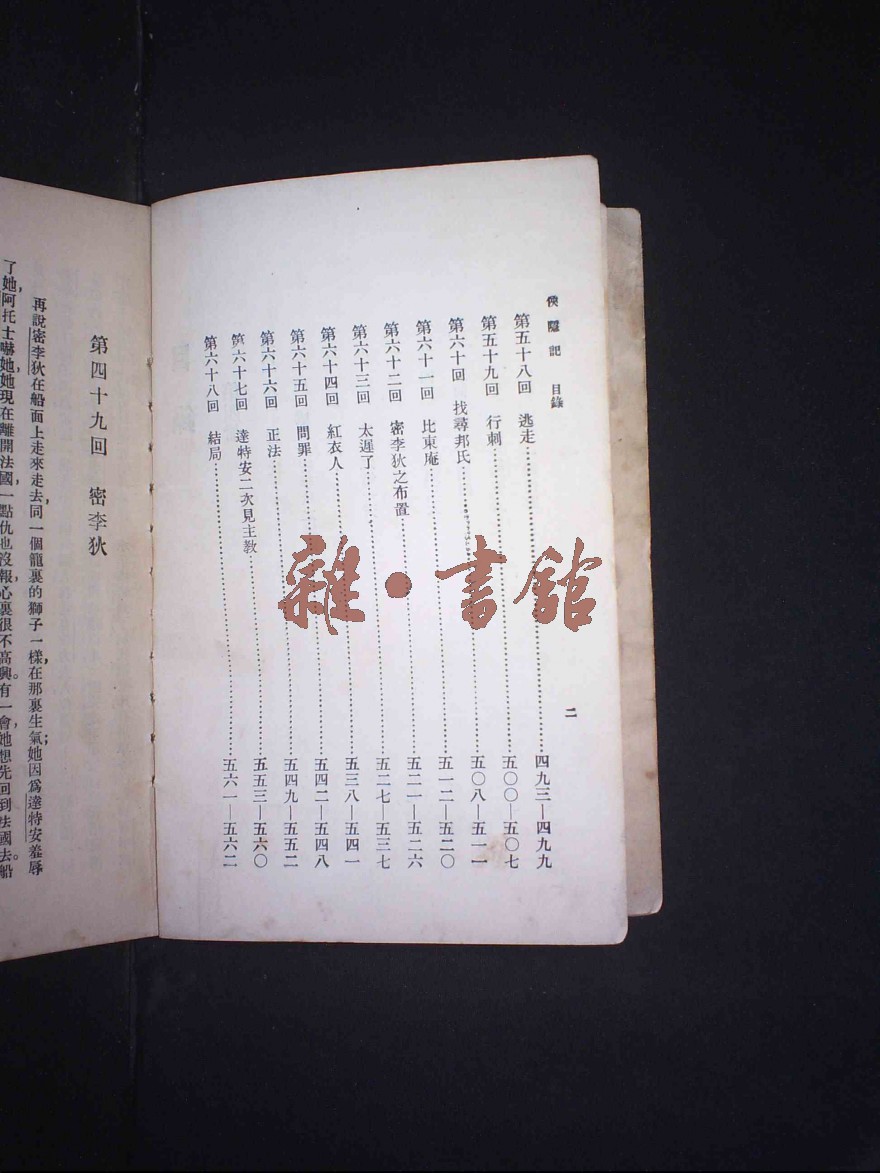 俠隱記 目錄 二
第五十八回 逃走 四九三—四九九
第五十九回 行刺 五〇〇—五〇七
第六十回 找尋邦氏 五〇八—五一一
第六十一回 比東庵 五一二—五二〇
第六十二回 密李狄之布置 五二一—五二六
第六十三回 太遲了 五二七—五三七
第六十四回 紅衣人 五三八—五四一
第六十五回 問罪 五四二—五四八
第六十六回 正法 五四九—五五二
第六十七回 達特安二次見主教 五五三—五六〇
第六十八回 結局 五六一—五六二
第四十九回 密李狄
再說密李狄在船面上走來走去，同一個籠裏的獅子一樣，在那裏生氣；她因爲達特安羞辱
了她，阿托士嚇她，她現在離開法國，一點仇也沒報，心裏很不高興。有一會，她想先回到法國去。船
雜·書館